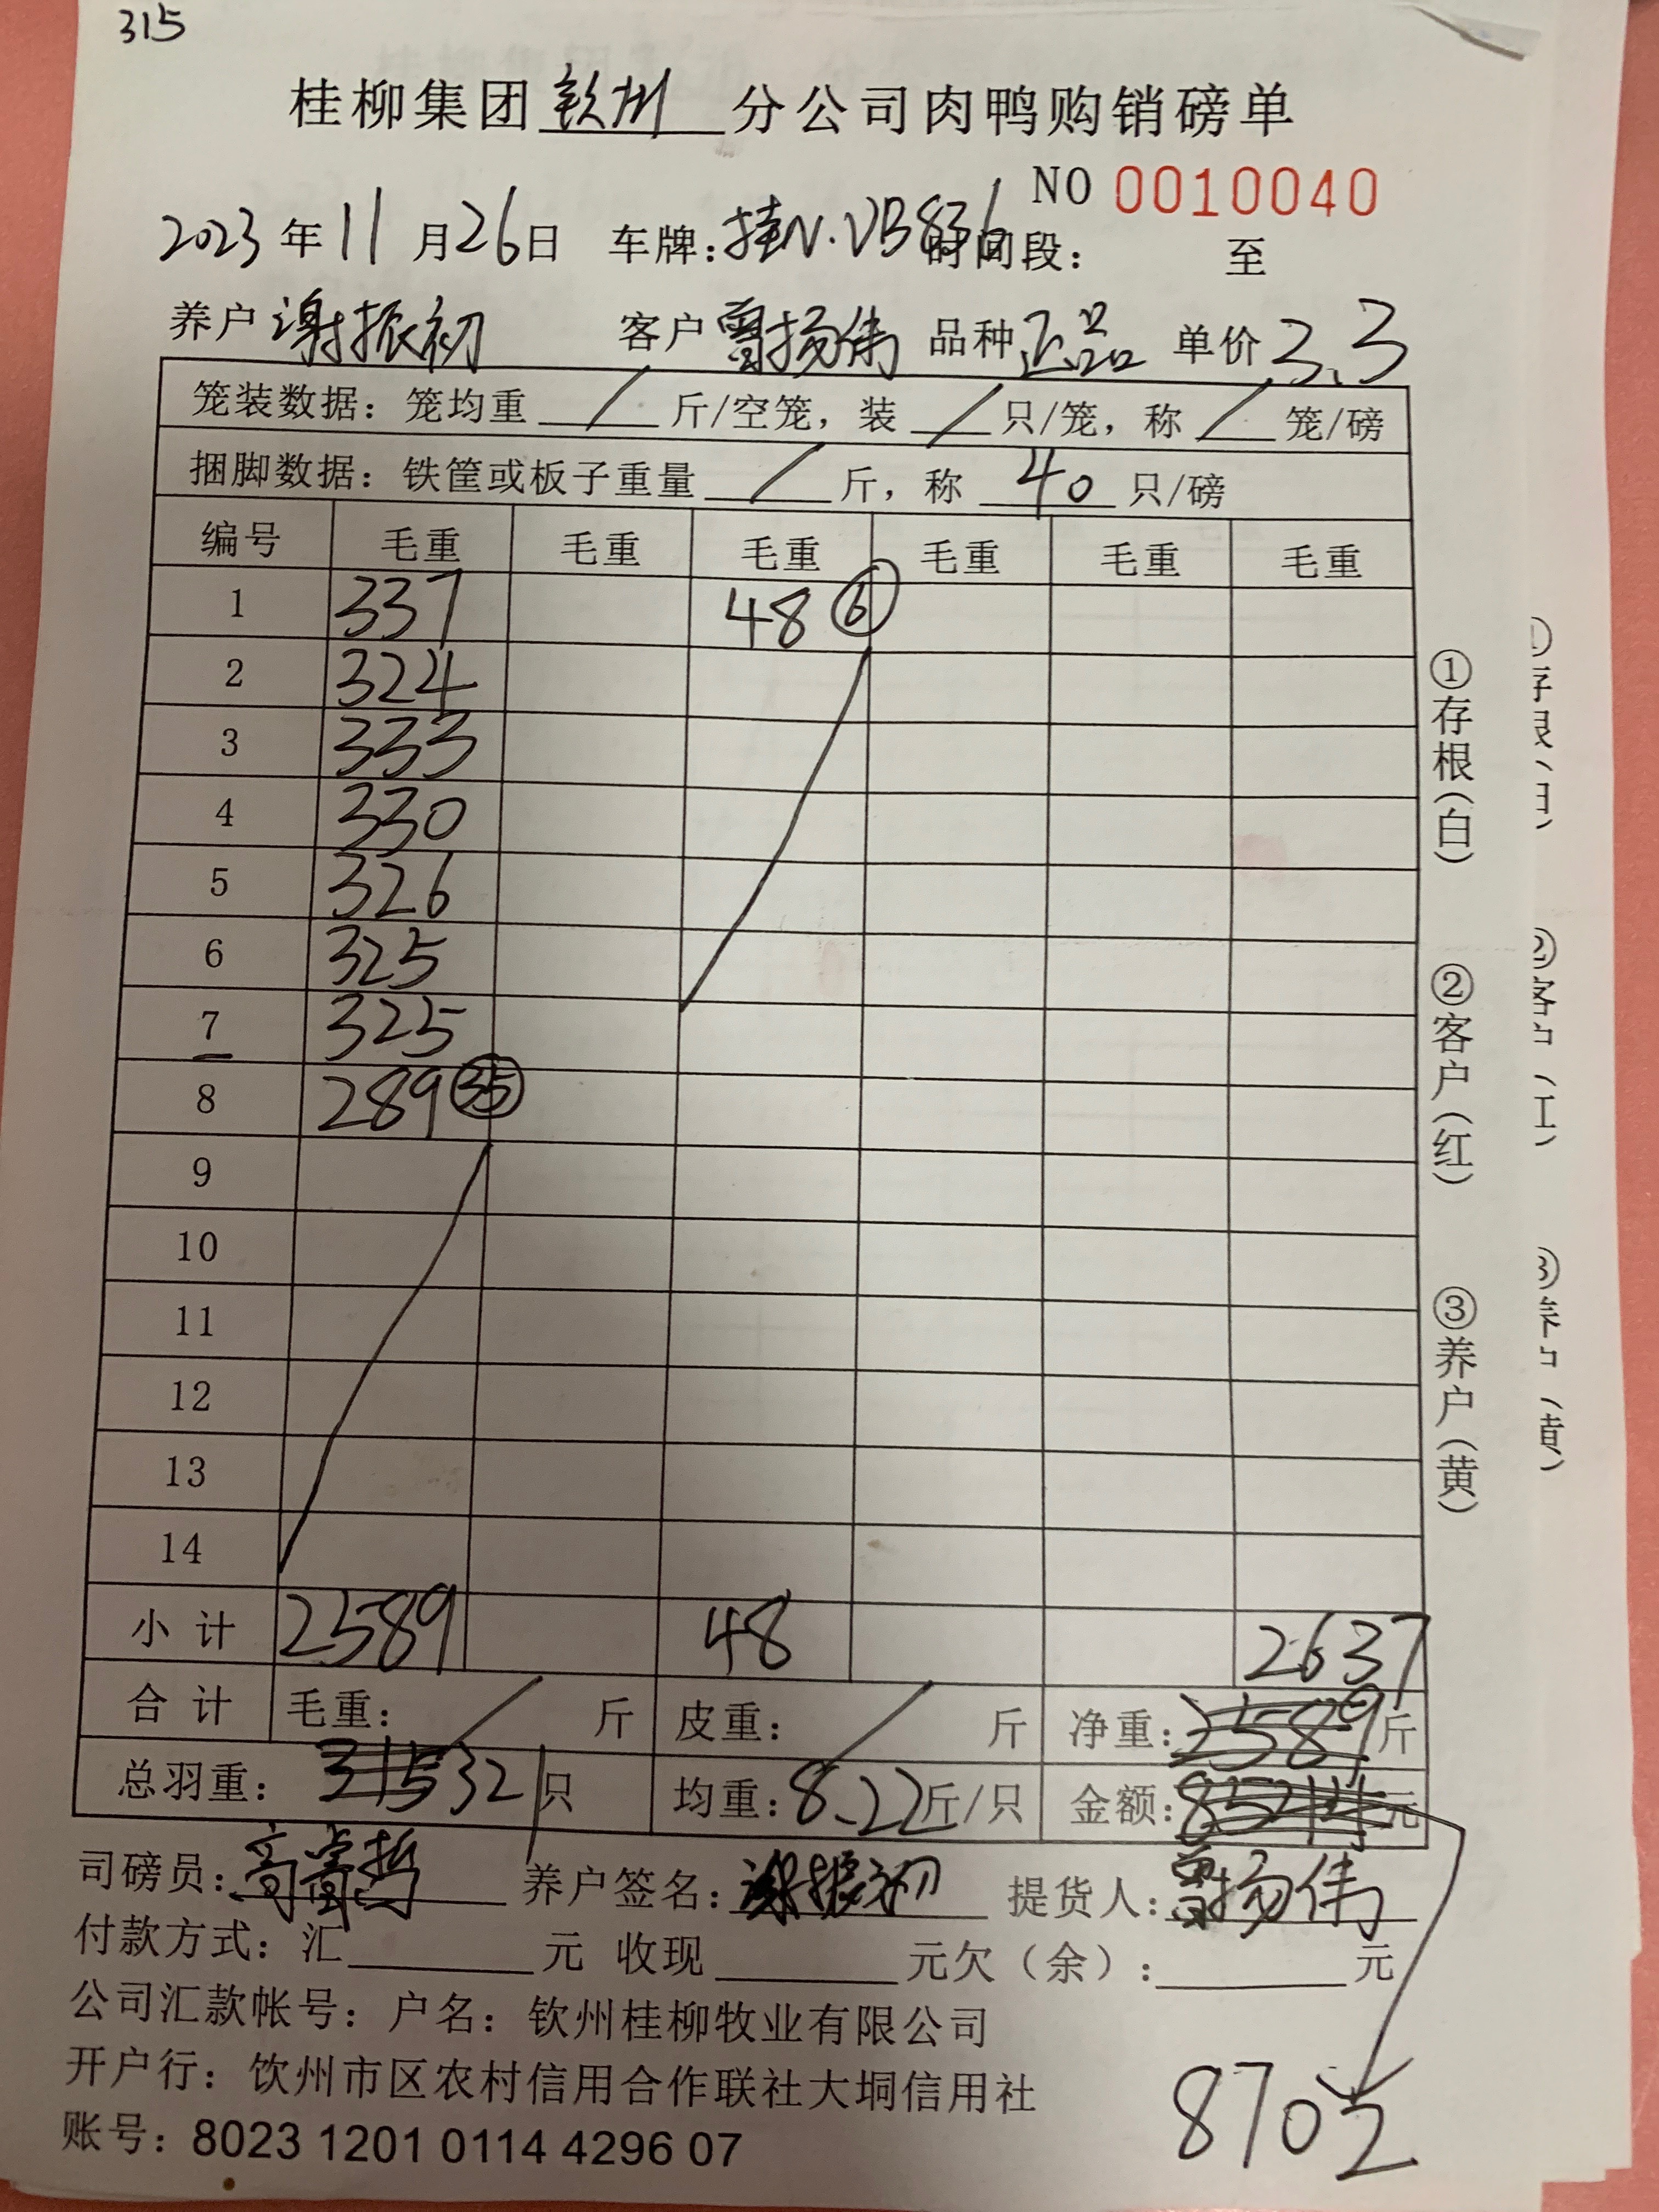 315
桂柳集团钦州分公司肉鸭购销磅单
NO 0010040
2023年11月26日 车牌:桂N·VB836 时间段: 至
养户谢振初 客户曾扬伟 品种正品 单价3.3
笼装数据:笼均重/斤/空笼,装/只/笼,称/笼/磅
捆脚数据:铁筐或板子重量/斤,称40只/磅
编号 毛重 毛重 毛重 毛重 毛重 毛重
1 337 48 ⑥
2 324
3 333
4 330
5 326
6 325
7 325
8 289 ㉟
9
10
11
12
13
14
小计 2589 48 2637
合计 毛重:/斤 皮重:/斤 净重:2589斤
总羽重:315 321只 均重:8.22斤/只 金额:元
司磅员: 养户签名:谢振初 提货人:曾扬伟
付款方式:汇 元 收现 元欠(余): 元
公司汇款帐号:户名:钦州桂柳牧业有限公司
开户行:钦州市区农村信用合作联社大垌信用社
账号:8023 1201 0114 4296 07
8702
①存根(白)
②客户(红)
③养户(黄)